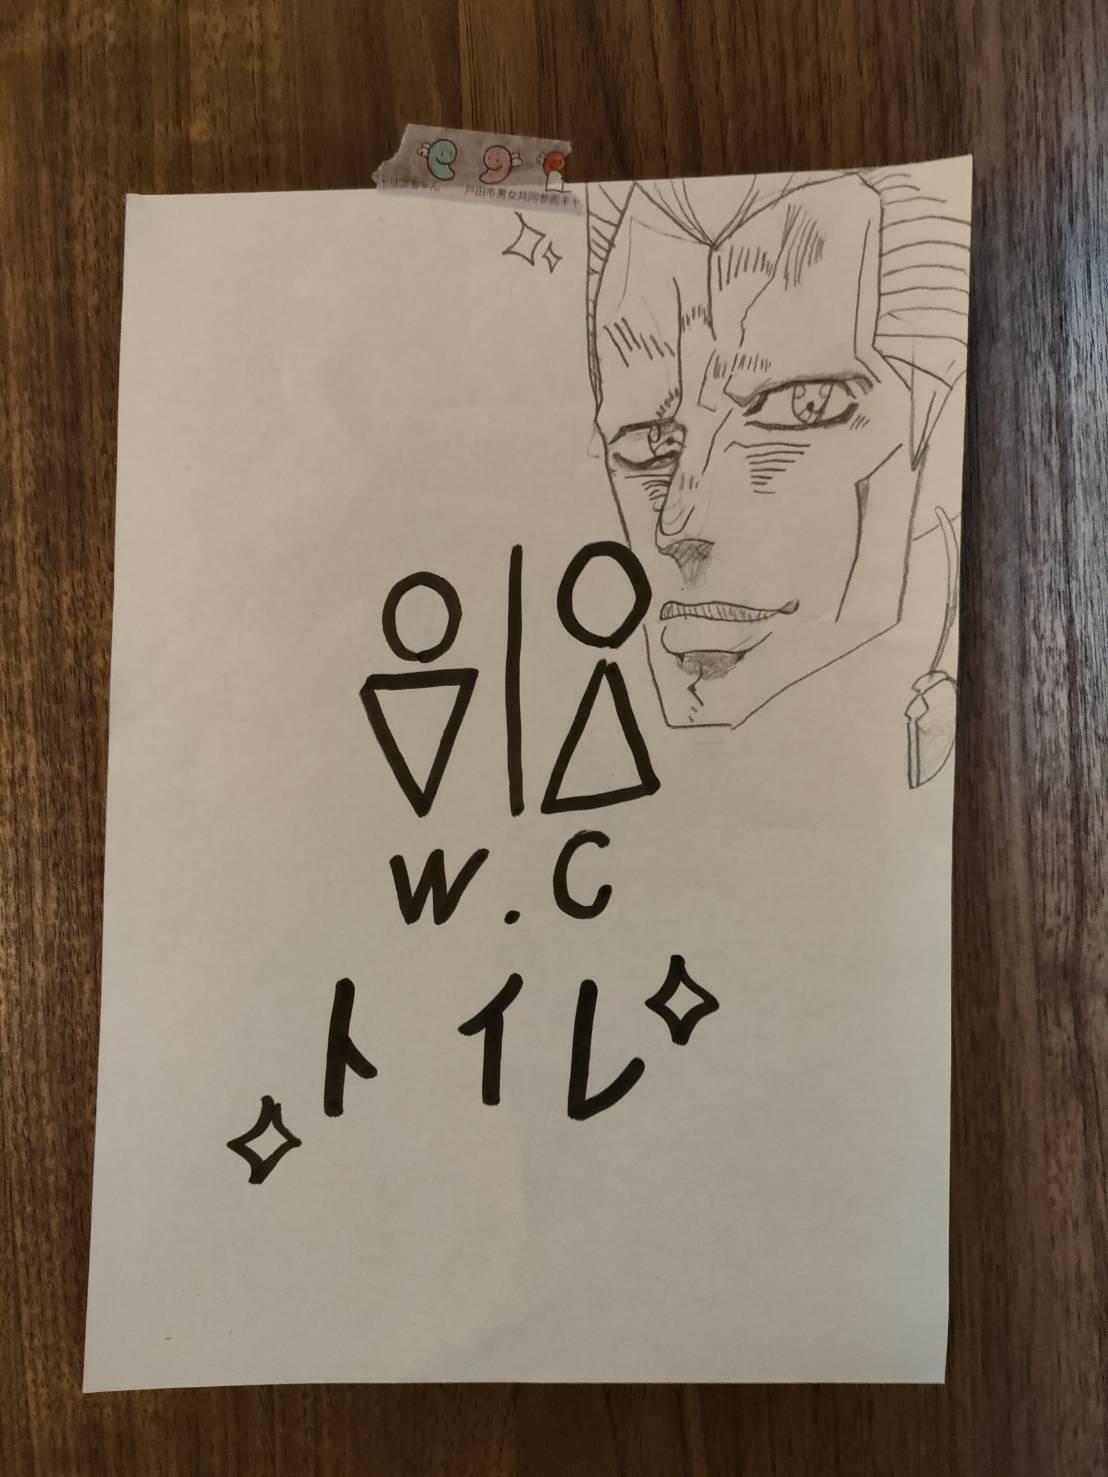 トリプちゃん 戸田市男女共同参画キャ
W.C
トイレ